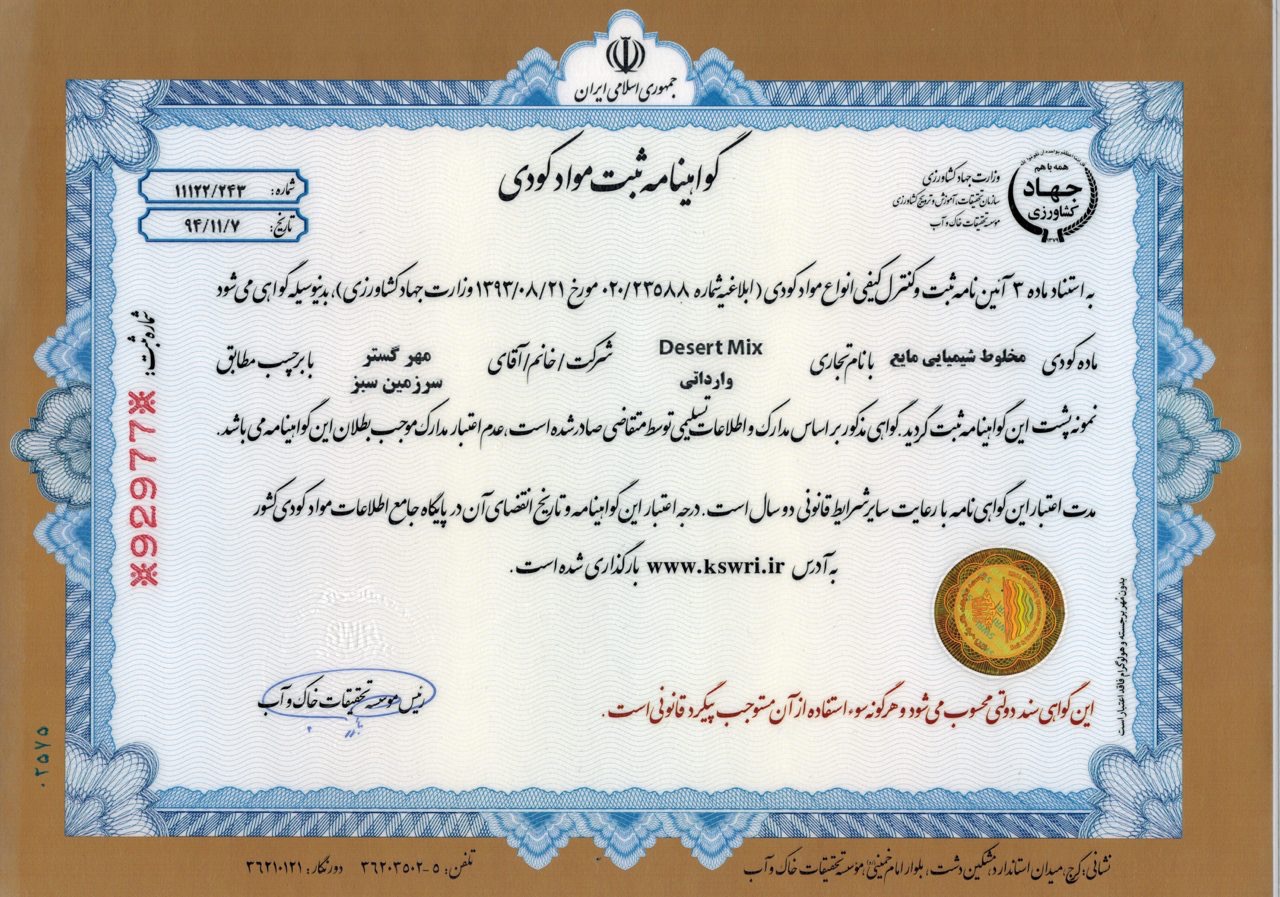 جمهوری اسلامی ایران
گواهینامه ثبت مواد کودی
همه با هم
جهاد
کشاورزی
وزارت جهاد کشاورزی
سازمان تحقیقات، آموزش و ترویج کشاورزی
موسسه تحقیقات خاک و آب
شماره: ۱۱۱۲۲/۲۴۳
تاریخ: ۹۴/۱۱/۷
به استناد ماده ۳ آئین نامه ثبت و کنترل کیفی انواع مواد کودی (ابلاغیه شماره ۰۲۰/۲۳۵۸۸ مورخ ۱۳۹۳/۰۸/۲۱ وزارت جهاد کشاورزی)، بدینوسیله گواهی می شود
ماده کودی مخلوط شیمیایی مایع با نام تجاری Desert Mix وارداتی شرکت / خانم / آقای مهر گستر سرزمین سبز با برچسب مطابق
نمونه پشت این گواهینامه ثبت گردید. گواهی مذکور بر اساس مدارک و اطلاعات تسلیمی توسط متقاضی صادر شده است، عدم اعتبار مدارک موجب بطلان این گواهینامه می باشد.
مدت اعتبار این گواهی نامه با رعایت سایر شرایط قانونی دو سال است. درجه اعتبار این گواهینامه و تاریخ انقضای آن در پایگاه جامع اطلاعات مواد کودی کشور
به آدرس www.kswri.ir بارگذاری شده است.
شماره ثبت:
※92977※
بدون مهر برجسته و هولوگرام فاقد اعتبار است
SWRI
رئیس موسسه تحقیقات خاک و آب
این گواهی سند دولتی محسوب می شود و هرگونه سوء استفاده از آن مستوجب پیگرد قانونی است.
۰۲۵۷۵
نشانی: کرج، میدان استاندارد، مشکین دشت، بلوار امام خمینی(ره)، مؤسسه تحقیقات خاک و آب
تلفن: ۵-۳۶۲۰۳۵۰۲ دورنگار: ۳۶۲۱۰۱۲۱